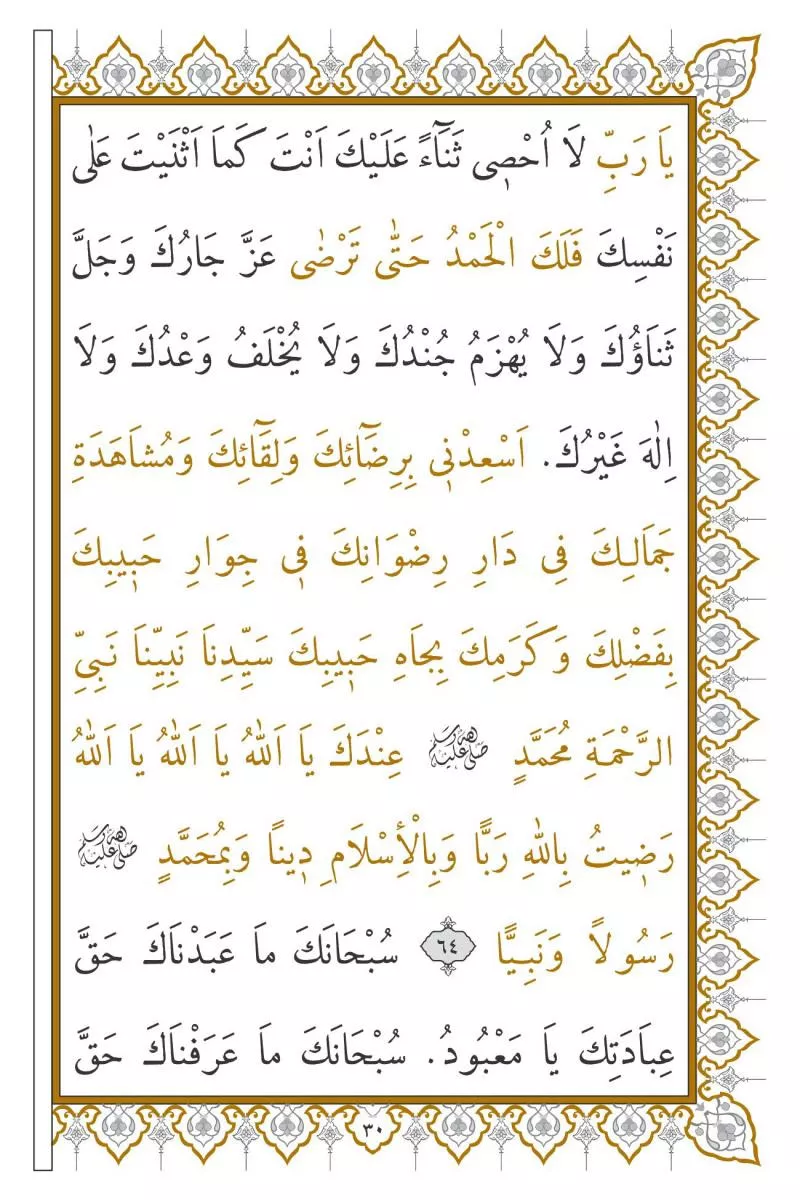 يَا رَبِّ لَا اُحْصٖى ثَنَٓاءً عَلَيْكَ اَنْتَ كَمَا اَثْنَيْتَ عَلٰى
نَفْسِكَ فَلَكَ الْحَمْدُ حَتّٰى تَرْضٰى عَزَّ جَارُكَ وَجَلَّ
ثَنَاؤُكَ وَلَا يُهْزَمُ جُنْدُكَ وَلَا يُخْلَفُ وَعْدُكَ وَلَا
اِلٰهَ غَيْرُكَ. اَسْعِدْنٖى بِرِضَٓائِكَ وَلِقَٓائِكَ وَمُشَاهَدَةِ
جَمَالِكَ فِى دَارِ رِضْوَانِكَ فٖى جِوَارِ حَبٖيبِكَ
بِفَضْلِكَ وَكَرَمِكَ بِجَاهِ حَبٖيبِكَ سَيِّدِنَا نَبِيِّنَا نَبِىِّ
الرَّحْمَةِ مُحَمَّدٍ ﷺ عِنْدَكَ يَا اَللّٰهُ يَا اَللّٰهُ يَا اَللّٰهُ
رَضٖيتُ بِاللّٰهِ رَبًّا وَبِالْأِسْلَامِ دٖينًا وَبِمُحَمَّدٍ ﷺ
رَسُولًا وَنَبِيًّا ٦٤ سُبْحَانَكَ مَا عَبَدْنَاكَ حَقَّ
عِبَادَتِكَ يَا مَعْبُودُ. سُبْحَانَكَ مَا عَرَفْنَاكَ حَقَّ
٣٠